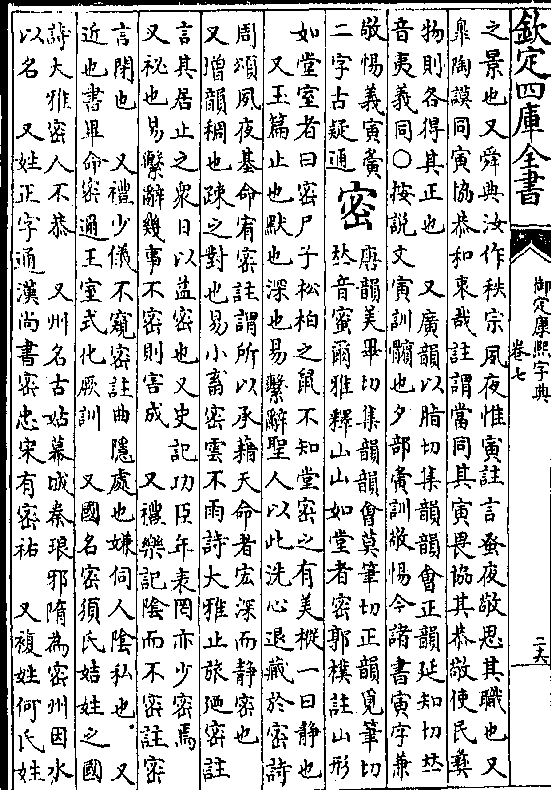 欽定四庫全書
御定康熙字典
卷七
二六
之景也又舜典汝作秩宗夙夜惟寅註言蚤夜敬思其職也又
臯陶謨同寅協恭和衷哉註謂當同其寅畏協其恭敬使民彝
物則各得其正也 又廣韻以脂切集韻韻會正韻延知切𠀤
音夷義同○按說文寅訓髕也夕部夤訓敬惕今諸書寅字兼
敬惕義寅夤
二字古疑通
密
唐韻美畢切集韻韻會莫筆切正韻覓筆切
𠀤音蜜爾雅釋山山如堂者密郭樸註山形
如堂室者曰密尸子松柏之鼠不知堂密之有美樅一曰静也
又玉篇止也默也深也易繫辭聖人以此洗心退藏於密詩
周頌夙夜基命宥密註謂所以承藉天命者宏深而静密也
又增韻稠也疎之對也易小畜密雲不雨詩大雅止旅廼密註
言其居止之衆日以益密也又史記功臣年表罔亦少密焉
又祕也易繫辭幾事不密則害成 又禮樂記陰而不密註密
言閉也 又禮少儀不窺密註曲隱處也嫌伺人陰私也 又
近也書畢命密邇王室式化厥訓 又國名密須氏姞姓之國
詩大雅密人不恭 又州名古姑幕城秦琅邪隋為密州因水
以名 又姓正字通漢尚書密忠宋有密祐 又複姓何氏姓